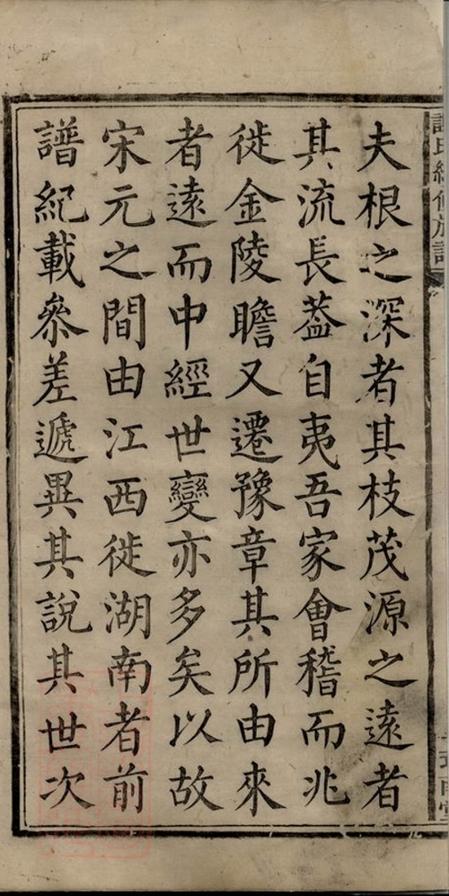 夫根之深者其枝茂源之遠者
其流長葢自夷吾家會稽而兆
徙金陵瞻又遷豫章其所由來
者遠而中經世變亦多矣以故
宋元之間由江西徙湖南者前
譜紀載叅差遞異其說其世次